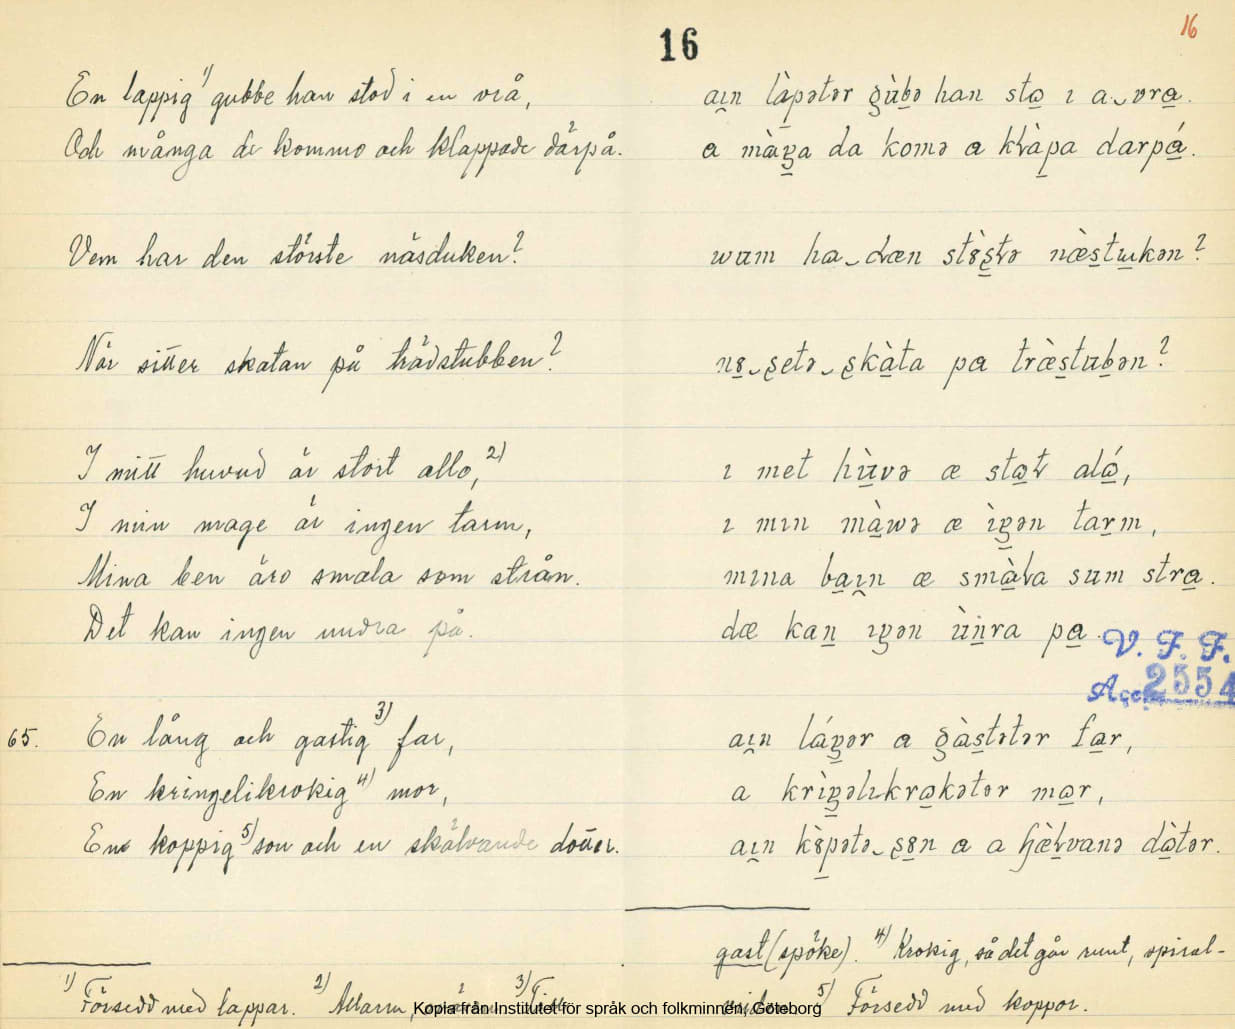 16
16
En lappig 1) gubbe han stod i en vrå,
Och många de kommo och klappade därpå.
Vem har den störste näsduken?
När sitter skatan på trädstubben?
I mitt huvud är stort allo, 2)
I min mage är ingen tarm,
Mina ben äro smala som strån.
Det kan ingen undra på.
65. En lång och gastig 3) far,
En kringelikrokig 4) mor,
En koppig 5) son och en skälvande dotter.
1) Försedd med lappar. 2) Allarm, 3)
aɪ̯n làpətər gùbə han sta ɪ a‿vra.
a màŋa da komə a kɽàpa darpá.
wum ha‿ɖæn stɵ̀sʈə næ̀stɯkən?
nɵ‿setə‿skàta pa træ̀stubən?
ɪ met hùvə æ staʈ alá,
ɪ mɪn màwə æ ìŋən tarm,
mɪna baɪ̯n æ smàɽa sum stra.
dæ kan ɪŋən ùnra pa.
V. F. F.
Acc. 2554
aɪ̯n láŋər a gàstətər far,
a krìŋəlɪkrakətər mar,
aɪ̯n kɵ̀pətə‿sɵn a a ɧæ̀ɽvanə dàtər.
gast (spöke). 4) Krokig, så det går runt, spiral-
5) Försedd med koppor.
Kopia från Institutet för språk och folkminnen, Göteborg